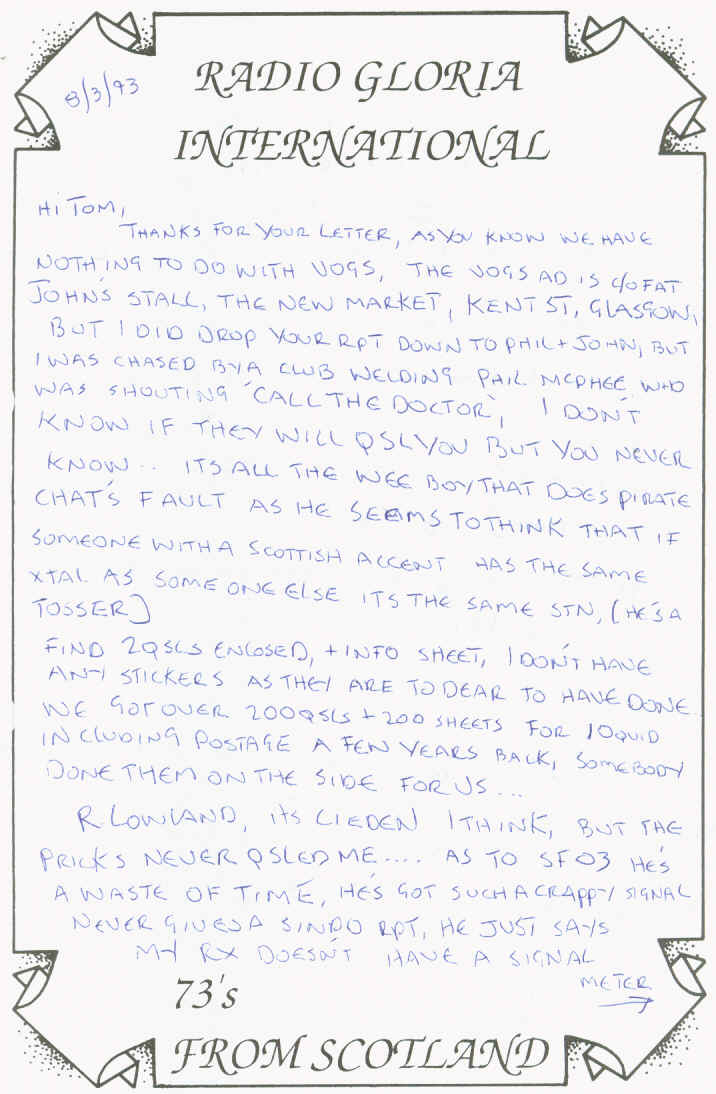 8/3/93
RADIO GLORIA
INTERNATIONAL
HI TOM,
THANKS FOR YOUR LETTER, AS YOU KNOW WE HAVE
NOTHING TO DO WITH VOGS, THE VOGS AD IS C/O FAT
JOHN'S STALL, THE NEW MARKET, KENT ST, GLASGOW,
BUT I DID DROP YOUR RPT DOWN TO PHIL + JOHN, BUT
I WAS CHASED BY A CLUB WELDING PHIL MCPHEE WHO
WAS SHOUTING "CALL THE DOCTOR", I DON'T
KNOW IF THEY WILL QSL YOU BUT YOU NEVER
KNOW.. ITS ALL THE WEE BOY THAT DOES PIRATE
CHAT'S FAULT AS HE SEEMS TO THINK THAT IF
SOMEONE WITH A SCOTTISH ACCENT HAS THE SAME
XTAL AS SOMEONE ELSE ITS THE SAME STN, (HE'S A
TOSSER)
FIND 2QSLS ENCLOSED, + INFO SHEET, I DON'T HAVE
ANY STICKERS AS THEY ARE TO DEAR TO HAVE DONE
WE GOT OVER 200QSLS + 200 SHEETS FOR 10QUID
INCLUDING POSTAGE A FEW YEARS BACK, SOMEBODY
DONE THEM ON THE SIDE FOR US...
R LOWLAND, ITS LIEDEN I THINK, BUT THE
PRICKS NEVER QSLED ME.... AS TO SFO3 HE'S
A WASTE OF TIME, HE'S GOT SUCH A CRAPPY SIGNAL
NEVER GIVES A SINPO RPT, HE JUST SAYS
MY RX DOESN'T HAVE A SIGNAL
METER
73's
FROM SCOTLAND